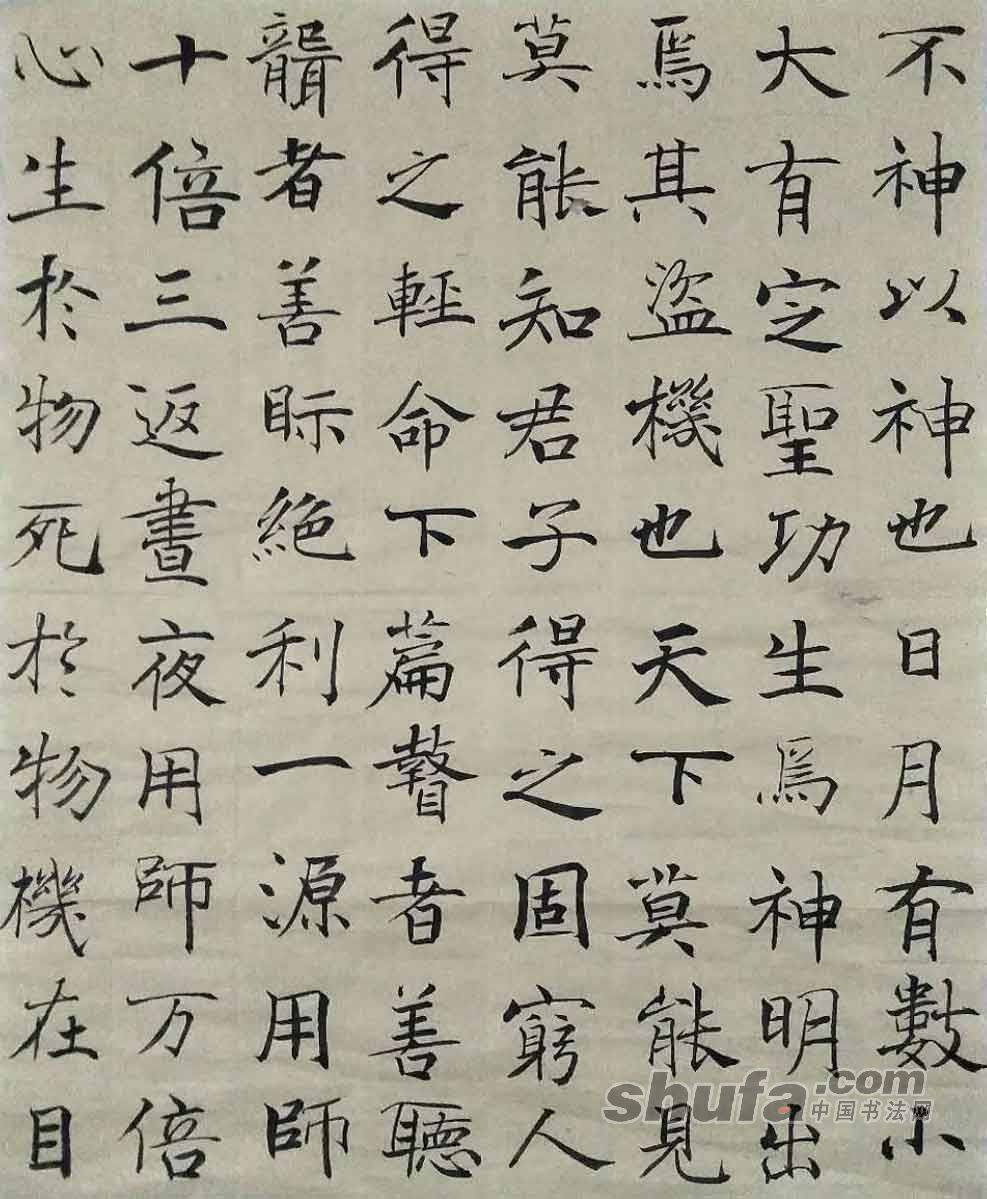 不神以神也日月有數小
大有定聖功生焉神明出
焉其盜機也天下莫能見
莫能知君子得之固窮人
得之輕命下篇瞽者善聽
聾者善眎絕利一源用師
十倍三返晝夜用師万倍
心生於物死於物機在目
shufa.com
中国书法网